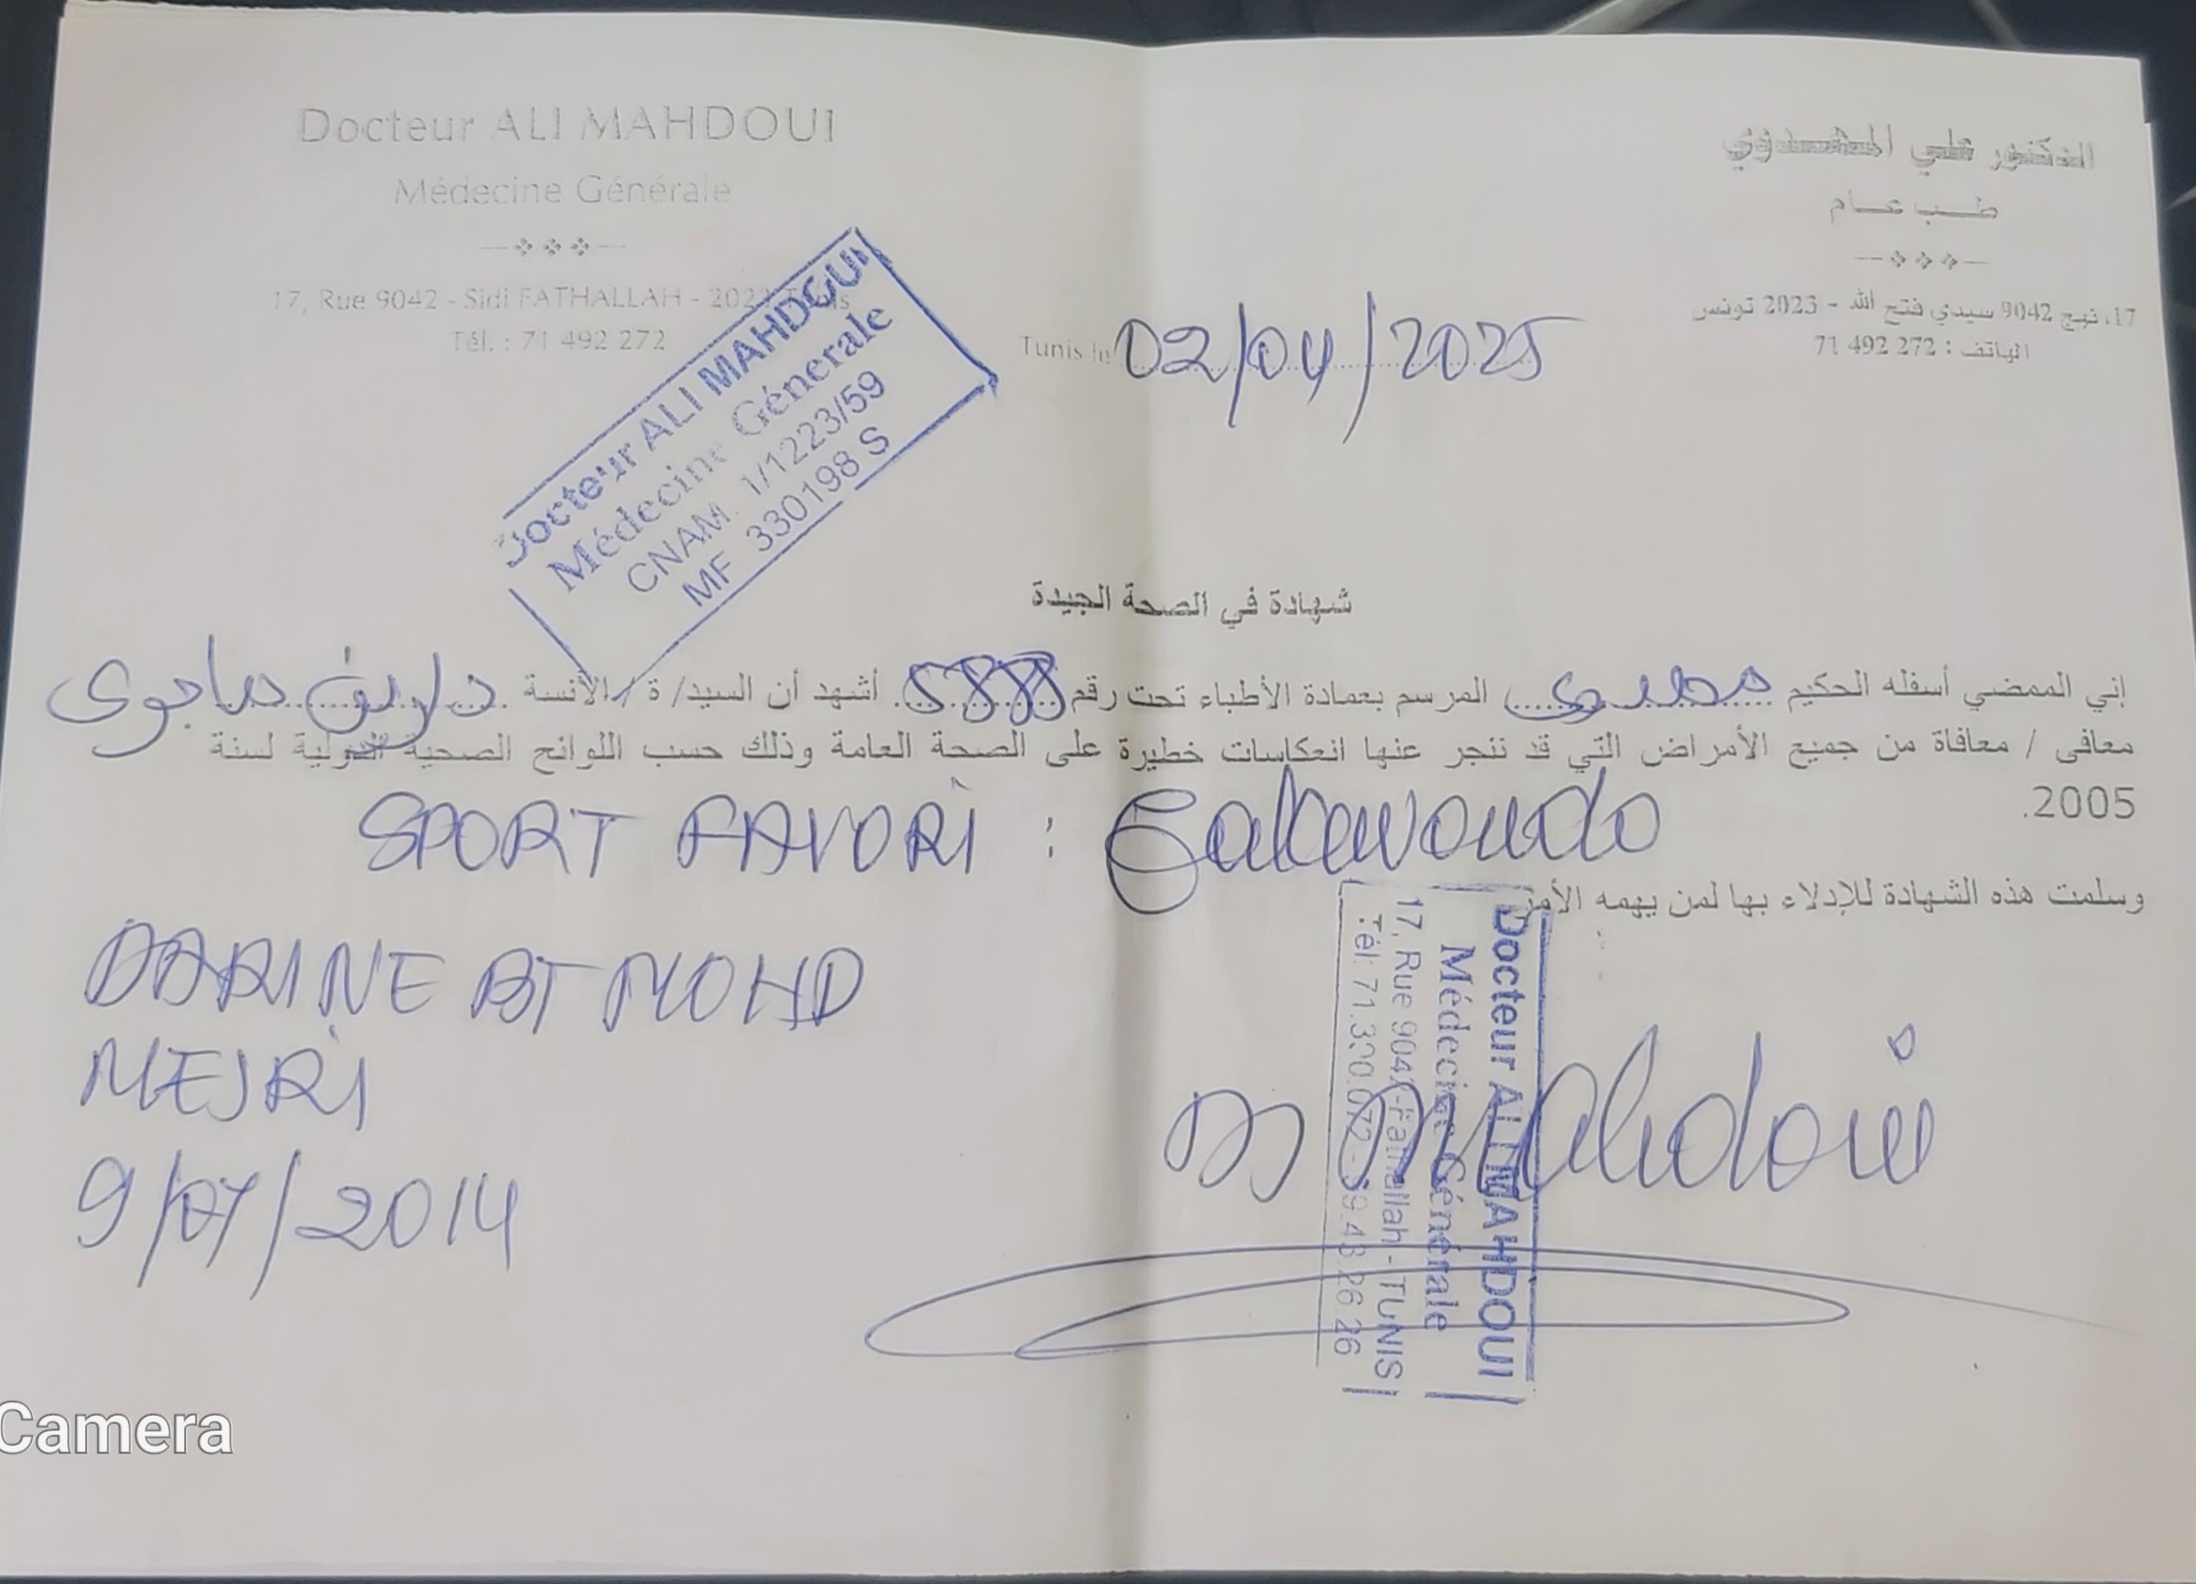 Docteur ALI MAHDOUI
Médecine Générale
17, Rue 9042 - Sidi FATHALLAH - 2023 Tunis
Tél. : 71 492 272
الدكتور علي المهدوي
طب عام
17، نهج 9042 سيدي فتح الله - 2023 تونس
الهاتف : 272 492 71
Tunis le 02/04/2025
Docteur ALI MAHDOUI
Médecine Génerale
CNAM. 1/1223/59
MF 330198 S
شهادة في الصحة الجيدة
إني الممضي أسفله الحكيم مهدوي المرسم بعمادة الأطباء تحت رقم 5888. أشهد أن السيد/ ة / الأنسة دارين
معافى / معافاة من جميع الأمراض التي قد تنجر عنها انعكاسات خطيرة على الصحة العامة وذلك حسب اللوائح الصحية الدولية لسنة
2005.
SPORT FAVORI : Taekwondo
وسلمت هذه الشهادة للإدلاء بها لمن يهمه الأمر
DARINE BT MOHD
MEJRI
9/07/2014
Docteur ALI MAHDOUI
Médecine Générale
17, Rue 9042-Fathallah - TUNIS
Tél: 71.390.072 - 59.43.26.26
Dr Mahdoui
Camera